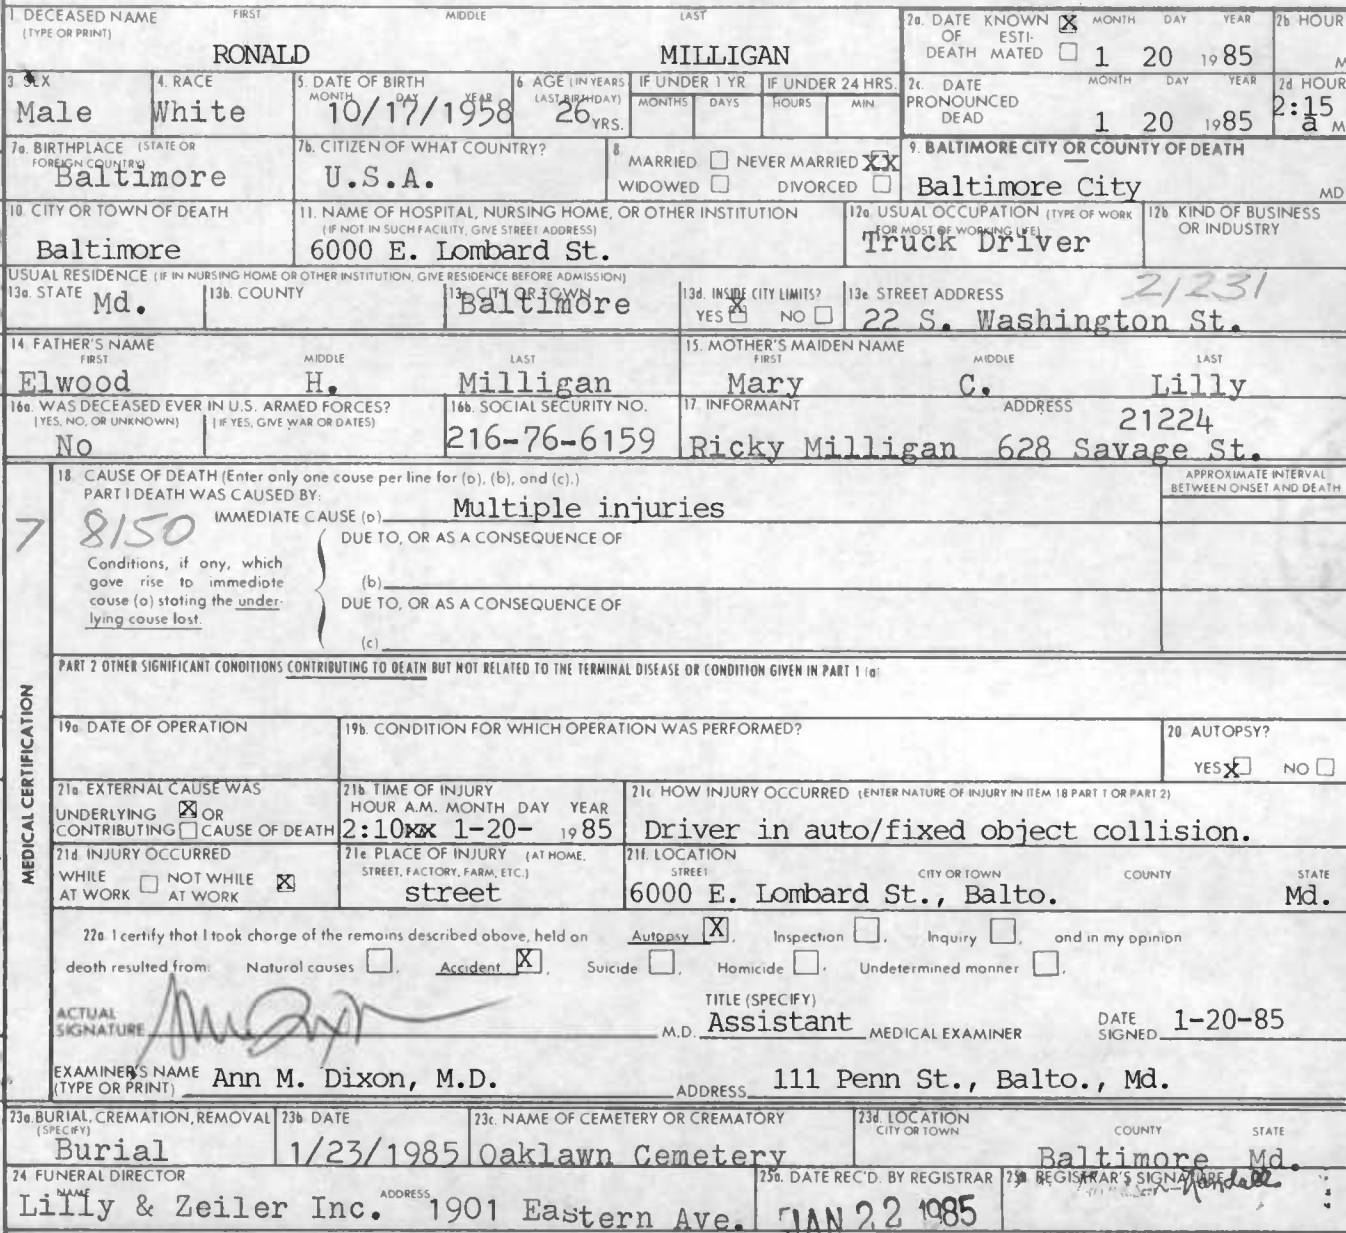 1 DECEASED NAME FIRST MIDDLE LAST
(TYPE OR PRINT)
RONALD MILLIGAN
2a. DATE KNOWN X MONTH DAY YEAR
OF ESTI-
DEATH MATED 1 20 1985
2b HOUR
M
3. SEX
Male
4. RACE
White
5. DATE OF BIRTH
MONTH DAY YEAR
10/17/1958
6 AGE (IN YEARS
LAST BIRTHDAY)
26 YRS.
IF UNDER 1 YR
MONTHS DAYS
IF UNDER 24 HRS.
HOURS MIN
2c. DATE MONTH DAY YEAR
PRONOUNCED
DEAD 1 20 1985
2d HOUR
2:15
a M
7a. BIRTHPLACE (STATE OR
FOREIGN COUNTRY)
Baltimore
7b. CITIZEN OF WHAT COUNTRY?
U.S.A.
8
MARRIED NEVER MARRIED XX
WIDOWED DIVORCED
9. BALTIMORE CITY OR COUNTY OF DEATH
Baltimore City MD
10. CITY OR TOWN OF DEATH
Baltimore
11. NAME OF HOSPITAL, NURSING HOME, OR OTHER INSTITUTION
(IF NOT IN SUCH FACILITY, GIVE STREET ADDRESS)
6000 E. Lombard St.
12a. USUAL OCCUPATION (TYPE OF WORK
FOR MOST OF WORKING LIFE)
Truck Driver
12b KIND OF BUSINESS
OR INDUSTRY
USUAL RESIDENCE (IF IN NURSING HOME OR OTHER INSTITUTION, GIVE RESIDENCE BEFORE ADMISSION)
13a. STATE
Md.
13b. COUNTY
13c. CITY OR TOWN
Baltimore
13d. INSIDE CITY LIMITS?
YES X NO
13e STREET ADDRESS 21231
22 S. Washington St.
14. FATHER'S NAME
FIRST MIDDLE LAST
Elwood H. Milligan
15. MOTHER'S MAIDEN NAME
FIRST MIDDLE LAST
Mary C. Lilly
16a. WAS DECEASED EVER IN U.S. ARMED FORCES?
(YES, NO, OR UNKNOWN) (IF YES, GIVE WAR OR DATES)
No
16b. SOCIAL SECURITY NO.
216-76-6159
17 INFORMANT ADDRESS
21224
Ricky Milligan 628 Savage St.
MEDICAL CERTIFICATION
18 CAUSE OF DEATH (Enter only one cause per line for (a), (b), and (c).)
PART I DEATH WAS CAUSED BY:
APPROXIMATE INTERVAL
BETWEEN ONSET AND DEATH
7 8150
IMMEDIATE CAUSE (a) Multiple injuries
DUE TO, OR AS A CONSEQUENCE OF
Conditions, if any, which
gave rise to immediate
cause (a) stating the under-
lying cause last.
(b)
DUE TO, OR AS A CONSEQUENCE OF
(c)
PART 2 OTHER SIGNIFICANT CONDITIONS CONTRIBUTING TO DEATH BUT NOT RELATED TO THE TERMINAL DISEASE OR CONDITION GIVEN IN PART 1 (a)
19a. DATE OF OPERATION
19b. CONDITION FOR WHICH OPERATION WAS PERFORMED?
20 AUTOPSY?
YES X NO
21a EXTERNAL CAUSE WAS
UNDERLYING X OR
CONTRIBUTING CAUSE OF DEATH
21b TIME OF INJURY
HOUR A.M. MONTH DAY YEAR
2:10xx 1-20- 1985
21c HOW INJURY OCCURRED (ENTER NATURE OF INJURY IN ITEM 18 PART 1 OR PART 2)
Driver in auto/fixed object collision.
21d INJURY OCCURRED
WHILE NOT WHILE X
AT WORK AT WORK
21e PLACE OF INJURY (AT HOME,
STREET, FACTORY, FARM, ETC.)
street
21f. LOCATION
STREET CITY OR TOWN COUNTY STATE
6000 E. Lombard St., Balto. Md.
22a I certify that I took charge of the remains described above, held on Autopsy X, Inspection , Inquiry , and in my opinion
death resulted from: Natural causes , Accident X, Suicide , Homicide , Undetermined manner .
ACTUAL
SIGNATURE
TITLE (SPECIFY)
M.D. Assistant MEDICAL EXAMINER
DATE
SIGNED 1-20-85
EXAMINER'S NAME
(TYPE OR PRINT) Ann M. Dixon, M.D. ADDRESS 111 Penn St., Balto., Md.
23a. BURIAL, CREMATION, REMOVAL
(SPECIFY)
Burial
23b. DATE
1/23/1985
23c. NAME OF CEMETERY OR CREMATORY
Oaklawn Cemetery
23d. LOCATION
CITY OR TOWN COUNTY STATE
Baltimore Md.
24 FUNERAL DIRECTOR
NAME ADDRESS
Lilly & Zeiler Inc. 1901 Eastern Ave.
25a. DATE REC'D. BY REGISTRAR
JAN 22 1985
25b REGISTRAR'S SIGNATURE
Randall